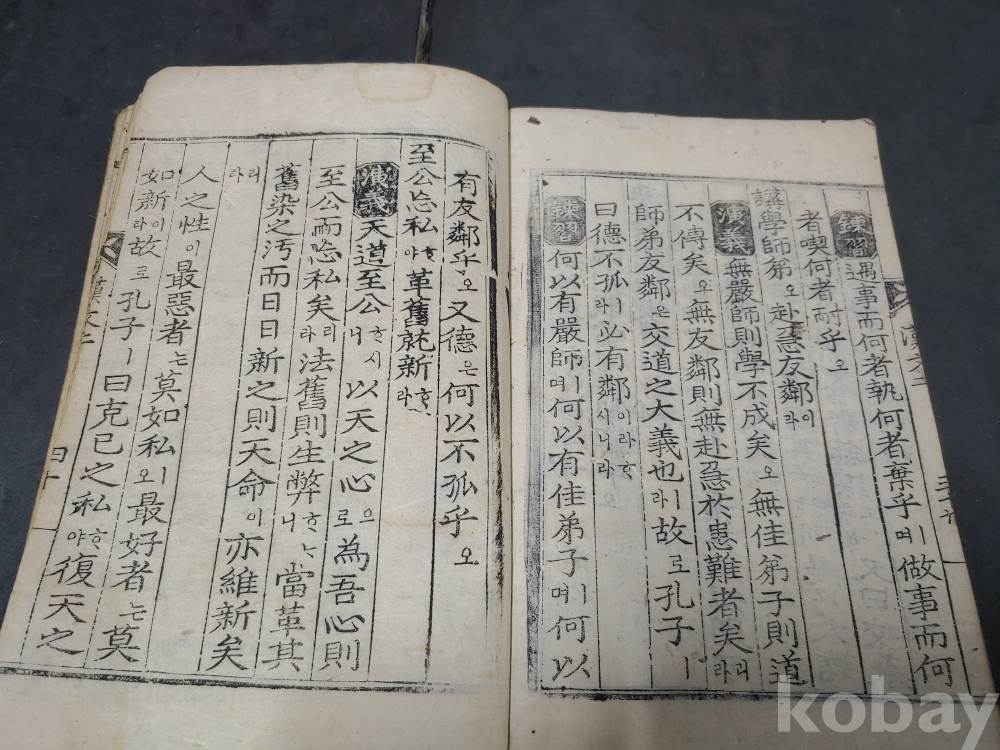 鍊習 遇事而何者執何者棄乎며 做事而何
者喫何者耐乎오
講學師弟오 赴急友鄰이라
演義 無嚴師則學不成矣오 無佳弟子則道
不傳矣오 無友鄰則無赴急於患難者矣리라
師弟友鄰은 交道之大義也라 故로 孔子ㅣ
曰德不孤ㅣ라 必有鄰이라ᄒᆞ시니라
鍊習 何以有嚴師며 何以有佳弟子며 何以
漢文二
有友鄰乎오 又德은 何以不孤乎오
至公忘私ᄒᆞ야 革舊就新ᄒᆞ라
演義 天道至公ᄒᆞ시니 以天之心으로 為吾心則
至公而忘私矣리라 法舊則生弊ᄒᆞᄂᆞ니 當革其
舊染之汚而日日新之則天命이 亦維新矣
리라
人之性이 最惡者ᄂᆞᆫ 莫如私ㅣ오 最好者ᄂᆞᆫ 莫
如新이라 故로 孔子ㅣ 曰克已之私ᄒᆞ야 復天之
漢文二
四十
kobay